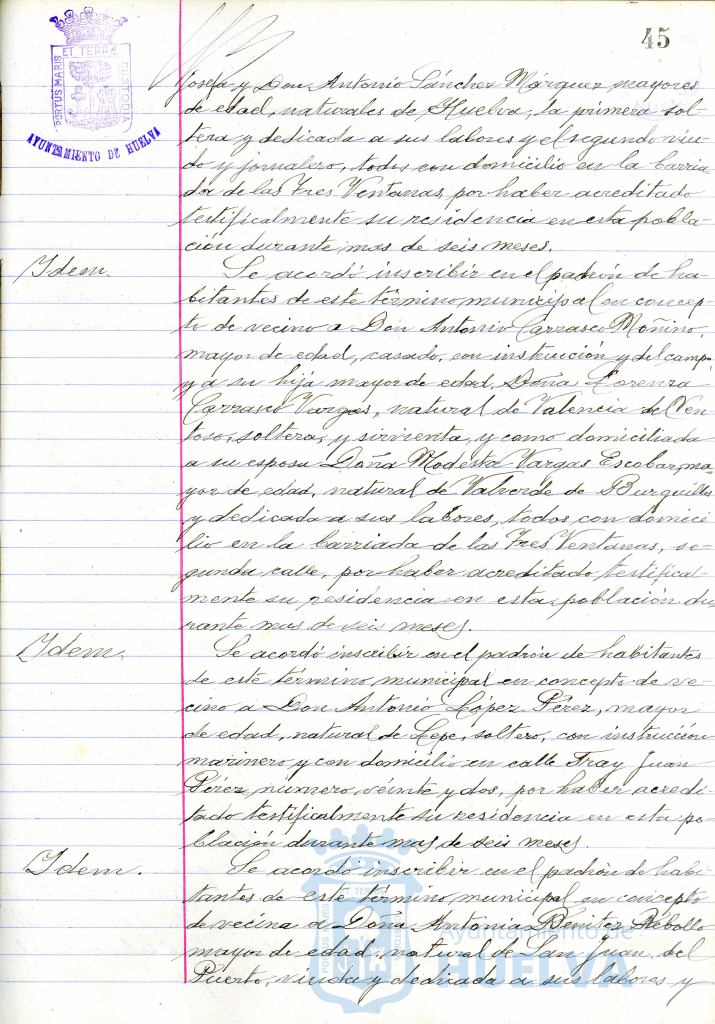 45
PORTUS MARIS ET TERRAE CUSTODIA
AYUNTAMIENTO DE HUELVA
Josefa y Don Antonio Sánchez Márquez mayores
de edad, naturales de Huelva, la primera sol-
tera y dedicada a sus labores y el segundo viu-
do y jornalero, todos con domicilio en la barria-
da de las Tres Ventanas, por haber acreditado
testificalmente su residencia en esta pobla-
ción durante mas de seis meses.
Idem.
Se acordó inscribir en el padrón de ha-
bitantes de este término municipal en concep-
to de vecino a Don Antonio Carrasco Moñino,
mayor de edad, casado, con instrucción y del campo,
y a su hija mayor de edad, Doña Lorenza
Carrasco Vargas, natural de Valencia del Ven-
toso, soltera, y sirvienta, y como domiciliada
a su esposa Doña Modesta Vargas Escobar, ma-
yor de edad, natural de Valverde de Burguillos
y dedicada a sus labores, todos con domici-
lio en la barriada de las Tres Ventanas, se-
gunda calle, por haber acreditado testifical-
mente su residencia en esta población du-
rante mas de seis meses.
Idem.
Se acordó inscribir en el padrón de habitantes
de este término municipal en concepto de ve-
cino a Don Antonio López Pérez, mayor
de edad, natural de Lepe, soltero, con instrucción
marinero y con domicilio en calle Fray Juan
Pérez número veinte y dos, por haber acredi-
tado testificalmente su residencia en esta po-
blación durante mas de seis meses.
Idem.
Se acordó inscribir en el padrón de habi-
tantes de este término municipal en concepto
de vecina a Doña Antonia Benitez Rebollo
mayor de edad, natural de San Juan del
Puerto, viuda y dedicada a sus labores y
Ayuntamiento de
HUELVA